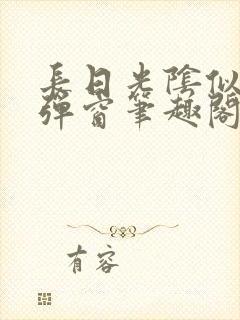 長日光陰似
彈窗筆趣閣
有容